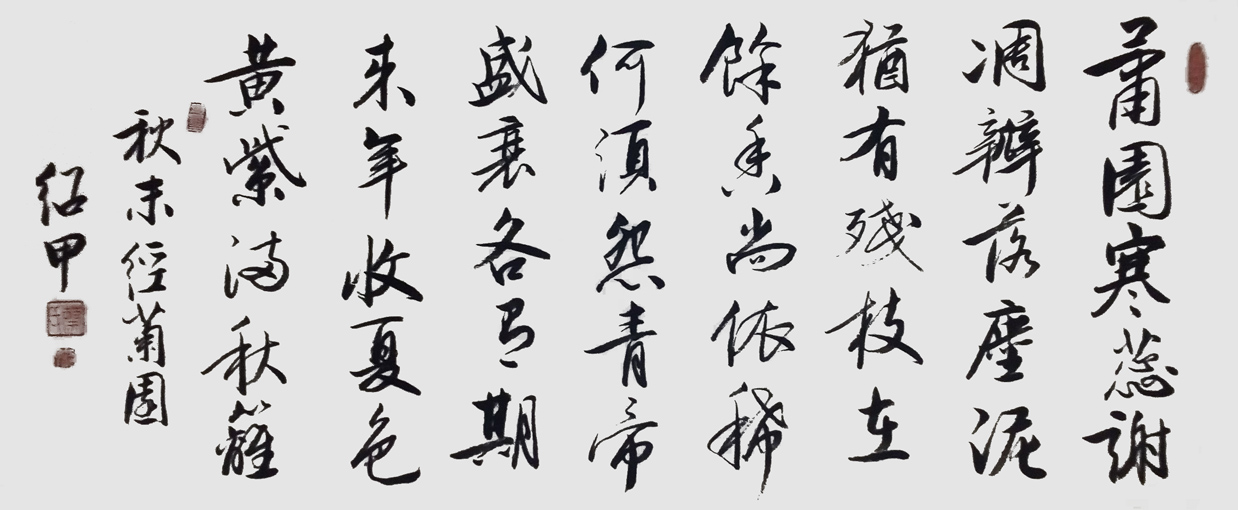 蕭園寒蕊謝
凋瓣落塵泥
猶有殘枝在
餘香尚依稀
何須怨青帝
盛衰各有期
来年收夏色
黃紫滿秋籬
秋末經菊園
紹甲